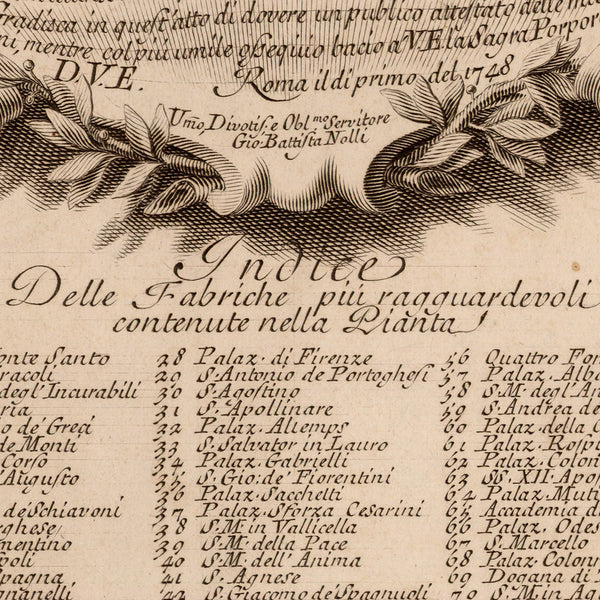 Gradisca in quest'atto di dovere un publico attestato delle
ni, mentre col più umile ossequio bacio a V.E. la Sagra Porpor
D.V.E. Roma il di primo del 1748
Umo Divotis. e Obl.mo Servitore
Gio. Battista Nolli
Indice
Delle Fabriche più ragguardevoli
contenute nella Pianta
onte Santo 28 Palaz. di Firenze 56 Quattro Fon
racoli 29 S. Antonio de Portoghesi 57 Palaz. Alba
degl'Incurabili 30 S. Agostino 58 S. M. degl'An
aria 31 S. Apollinare 59 S. Andrea de
o de' Greci 32 Palaz. Altemps 60 Palaz. della C
de Monti 33 S. Salvator in Lauro 61 Palaz. Rospi
Corso 34 Palaz. Gabrielli 62 Palaz. Colon
d'Augusto 35 S. Gio: de' Fiorentini 63 SS. XII. Apos
36 Palaz. Sacchetti 64 Palaz. Muti
de' Schiavoni 37 Palaz. Sforza Cesarini 65 Accademia d
rghese 38 S. M. in Vallicella 66 Palaz. Odes
mentino 39 S. M. della Pace 67 S. Marcello
poli 40 S. M. dell'Anima 68 Palaz. Colonn
Spagna 41 S. Agnese 69 Dogana di
gnanelli 42 S. Giacomo de' Spagnuoli 70 S. M. in